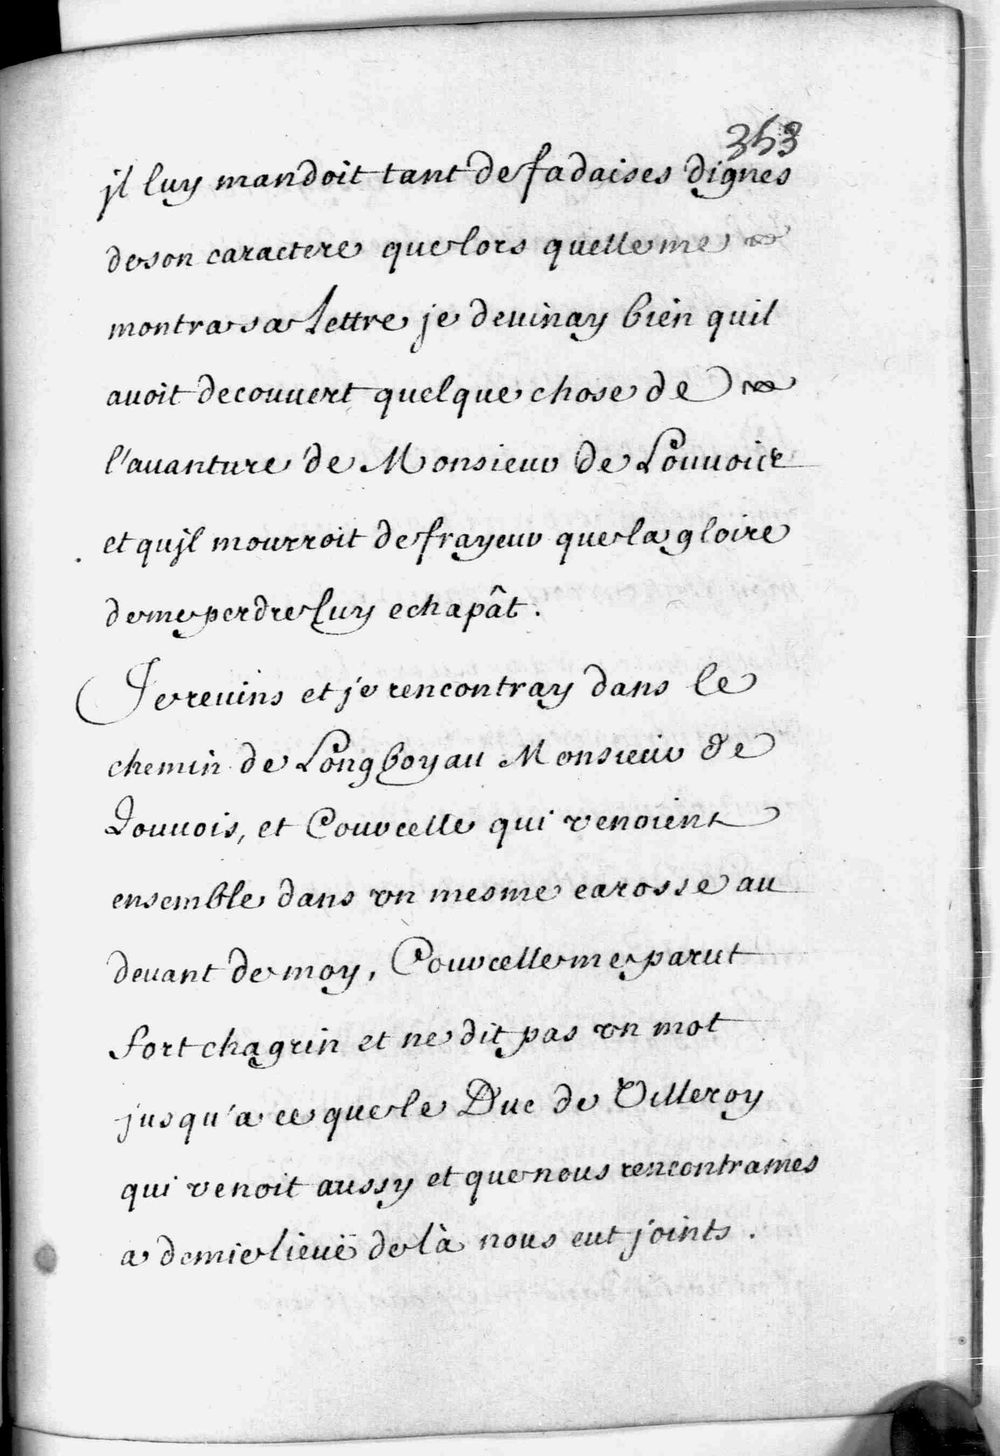 353
jl luy mandoit tant de fadaises dignes
de son caractere que lors quelle me
montra sa Lettre je deuinay bien quil
auoit decouuert quelque chose de
l'auanture de Monsieur de Louuoiee
et qujl mourroit de frayeur que la gloire
de me perdre luy echapât.
Je reuins et je rencontray dans le
chemin de Longboyau Monsieur de
Louuois, et Courcelle qui venoient
ensemble dans vn mesme carosse au
deuant de moy, Courcelle me parut
fort chagrin et ne dit pas vn mot
jusqu'a ce que le Duc de Villeroy
qui venoit aussy et que nous rencontrames
a demie lieuë de là nous eut joints.